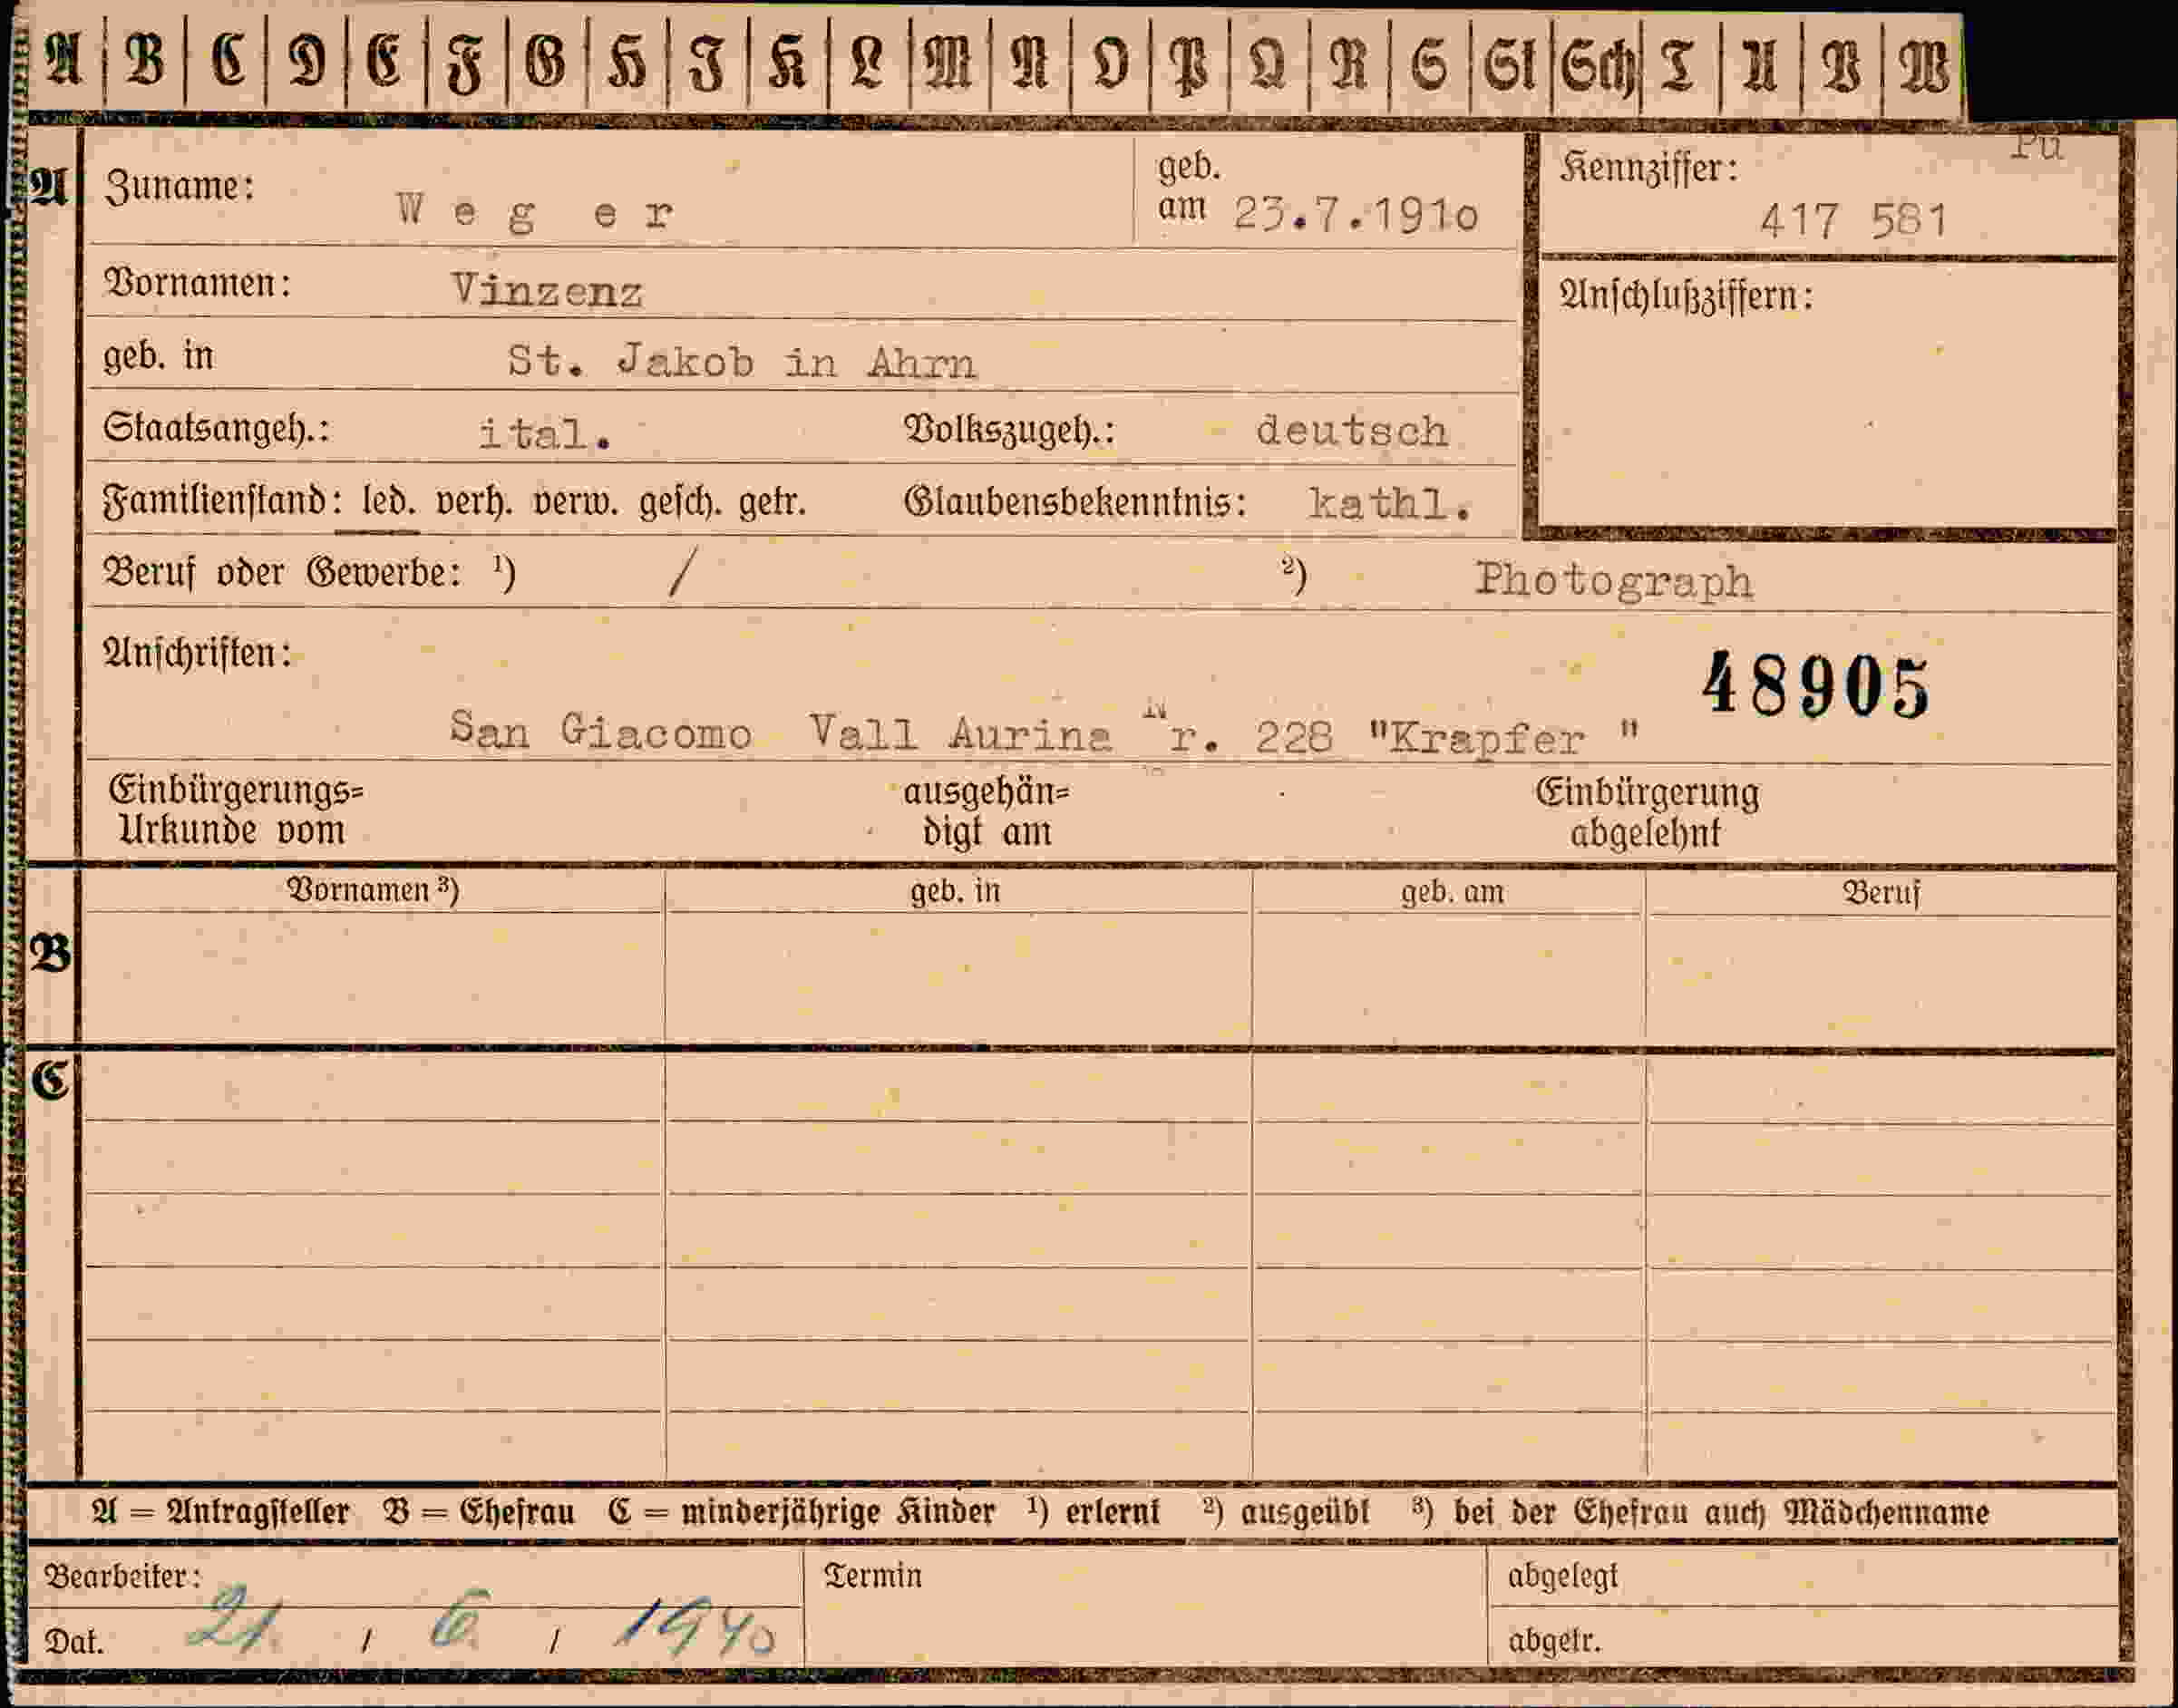 A B C D E F G H I K L M N O P Q R S St Sch T U V W
Pu
A Zuname: W e g e r geb. am 23.7.1910 Kennziffer: 417 581
Vornamen: Vinzenz Anschlußziffern:
geb. in St. Jakob in Ahrn
Staatsangeh.: ital. Volkszugeh.: deutsch
Familienstand: led. verh. verw. gesch. getr. Glaubensbekenntnis: kathl.
Beruf oder Gewerbe: ¹) / ²) Photograph
Anschriften: 48905
San Giacomo Vall Aurina Nr. 228 "Krapfer "
Einbürgerungs= ausgehän= Einbürgerung
Urkunde vom digt am abgelehnt
Vornamen ³) geb. in geb. am Beruf
B
C
A = Antragsteller B = Ehefrau C = minderjährige Kinder ¹) erlernt ²) ausgeübt ³) bei der Ehefrau auch Mädchenname
Bearbeiter: Termin abgelegt
Dat. 21. / 6. / 1940 abgetr.